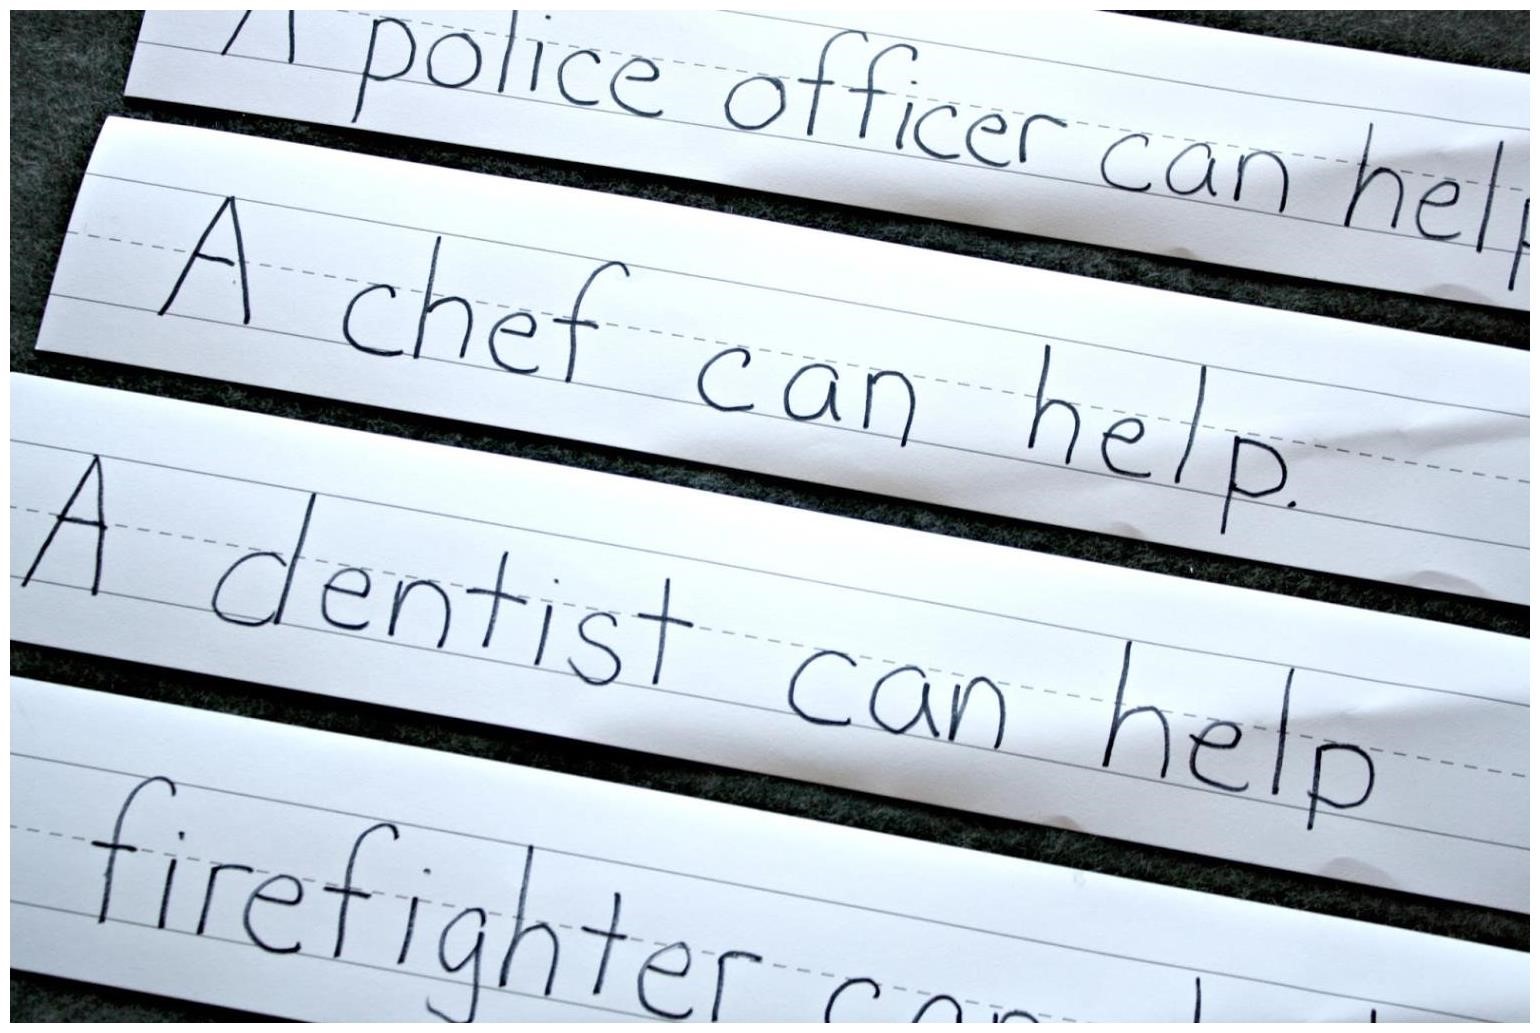 A police officer can help
A chef can help.
A dentist can help
firefighter can